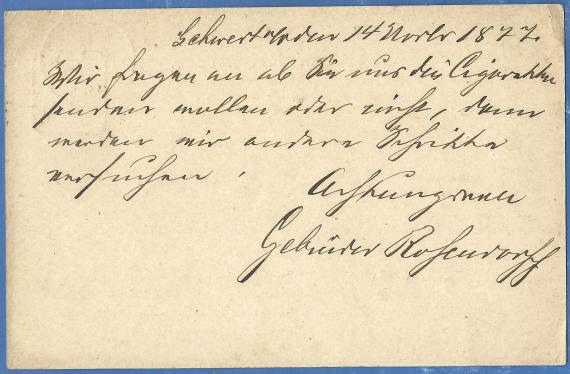 Schwerin a/W den 14 Novbr 1877.
Wir fragen an ob Sie uns die Cigaretten
senden wollen oder nicht, denn
werden wir andere Schritte
versuchen.
Achtungsvoll
Gebrüder Rosendorff